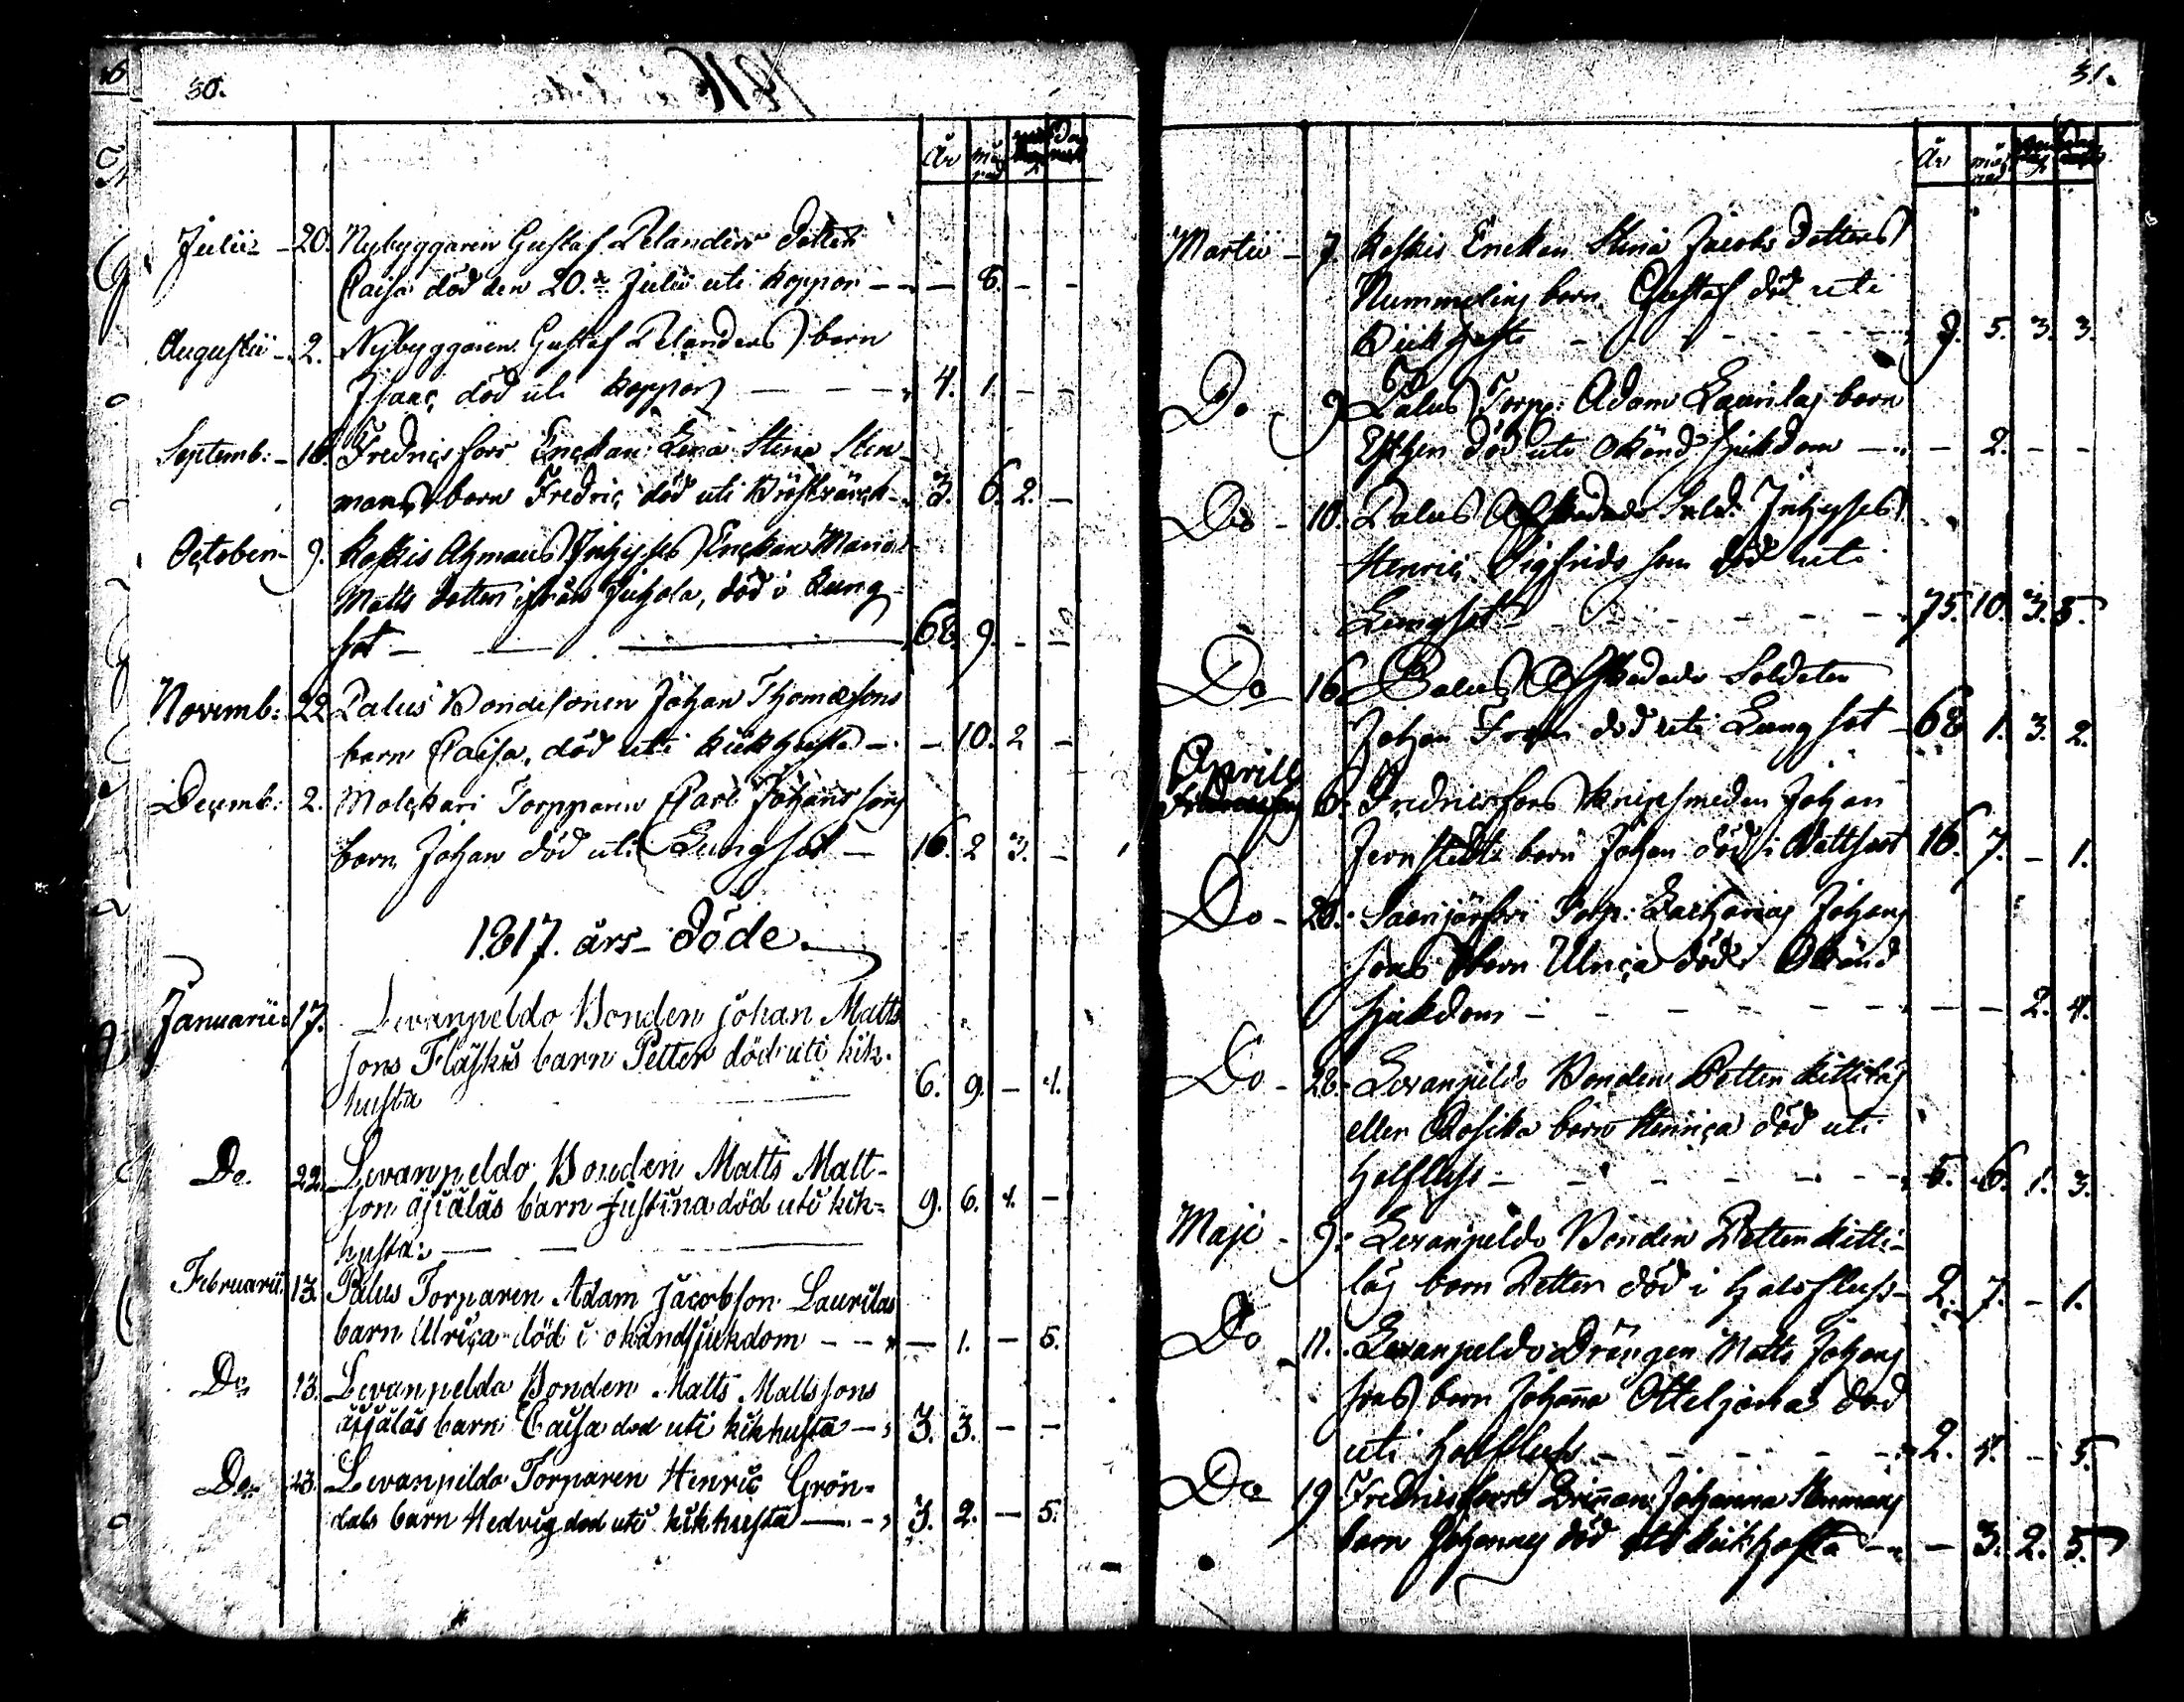 30.
År må nad
Julii - 20. Nybyggaren Gustaf Relanders dotter
Caisa död den 20.de Julii uti koppor - - 8. - -
Augustii - 2. Nybyggaren Gustaf Relanders barn
Isaac död uti koppor - - - 4. 1. - -
Septemb: - 18. Fredricsfors Enckan Lena Stina Sten-
mans barn Fredric död uti Bröstvärck - 3. 6. 2. -
October - 9. Kaskis Enckan Maria
Matts dotter ifrån Juhola, död i Lung-
sot - 68. 9. - -
Novemb: 22 Palus Bondesonen Johan Thomæsons
barn Caisa, död uti kikhusta - - 10. 2 -
Decemb: 2. Molckari Torpparen Carl Johans sons
barn Johan död uti Lungsot - 16. 2 3. -
1817. års döde.
Januarii 17. Levanpeldo Bonden Johan Matts
sons Flaskis barn Petter död uti kik-
husta 6. 9. - 4.
Do. 22. Levanpeldo Bonden Matts Matt-
son äjäläs barn Justina död uti kik= 9. 6. 1. -
husta: -
Februarii 13. Palus Torparen Adam Jacobson Laurilas
barn Ulrica död i okänd sjukdom - - - 1. - 5.
Do 13. Levanpelda Bonden Matts Matts sons
äjälas barn Caisa död uti kikhusta - 3. 3. - -
Do 23. Levanpeldo Torparen Henric Grön-
dals barn Hedvig död uti kikhusta - 3. 2. - 5.
31.
År må nad
Martii - 7. Kaskis Enckan Stina Jacobs dotters
Nummelins barn Gustaf död uti
Kikhosta - 9. 5. 3. 3.
Do 9 Palus Torp: Adam Laurilas barn
Esther död uti okänd sjukdom - - 2. - -
Do - 10. Palus Afskedade Sold.
Henric Sigfrids son död uti
Lungsot - 75. 10. 3. 5.
Do 16. Palus Afskedade Soldaten
Johan död uti Lungsot - 68 1. 3. 2.
Aprill 6. Fredricsfors Knipsmeden Johan
Jernstedts barn Johan död i Vattsot 16. 7. - 1.
Do - 28. Torp: Zacharias Johans
sons barn Ulrica död i Okänd
sjukdom - - - 2. 4.
Do - 28. Levanpeldo Bonden Petter Kittilas
eller Rosika barn Henrica död uti
Halfluss - 5. 6. 1. 3.
Maji - 9. Levanpeldo Bonden Petter Kitti-
las barn Petter död i Halsfluss - 2. 7. - 1.
Do 11. Levanpeldo Drängen Matts Johans
sons barn Johanna Otteljana död
uti Halfluss - 2. 4. - 5.
Do 19 Fredricsfors Johanna Stenmans
barn Johannes död uti kikhosta - - 3. 2. 5.